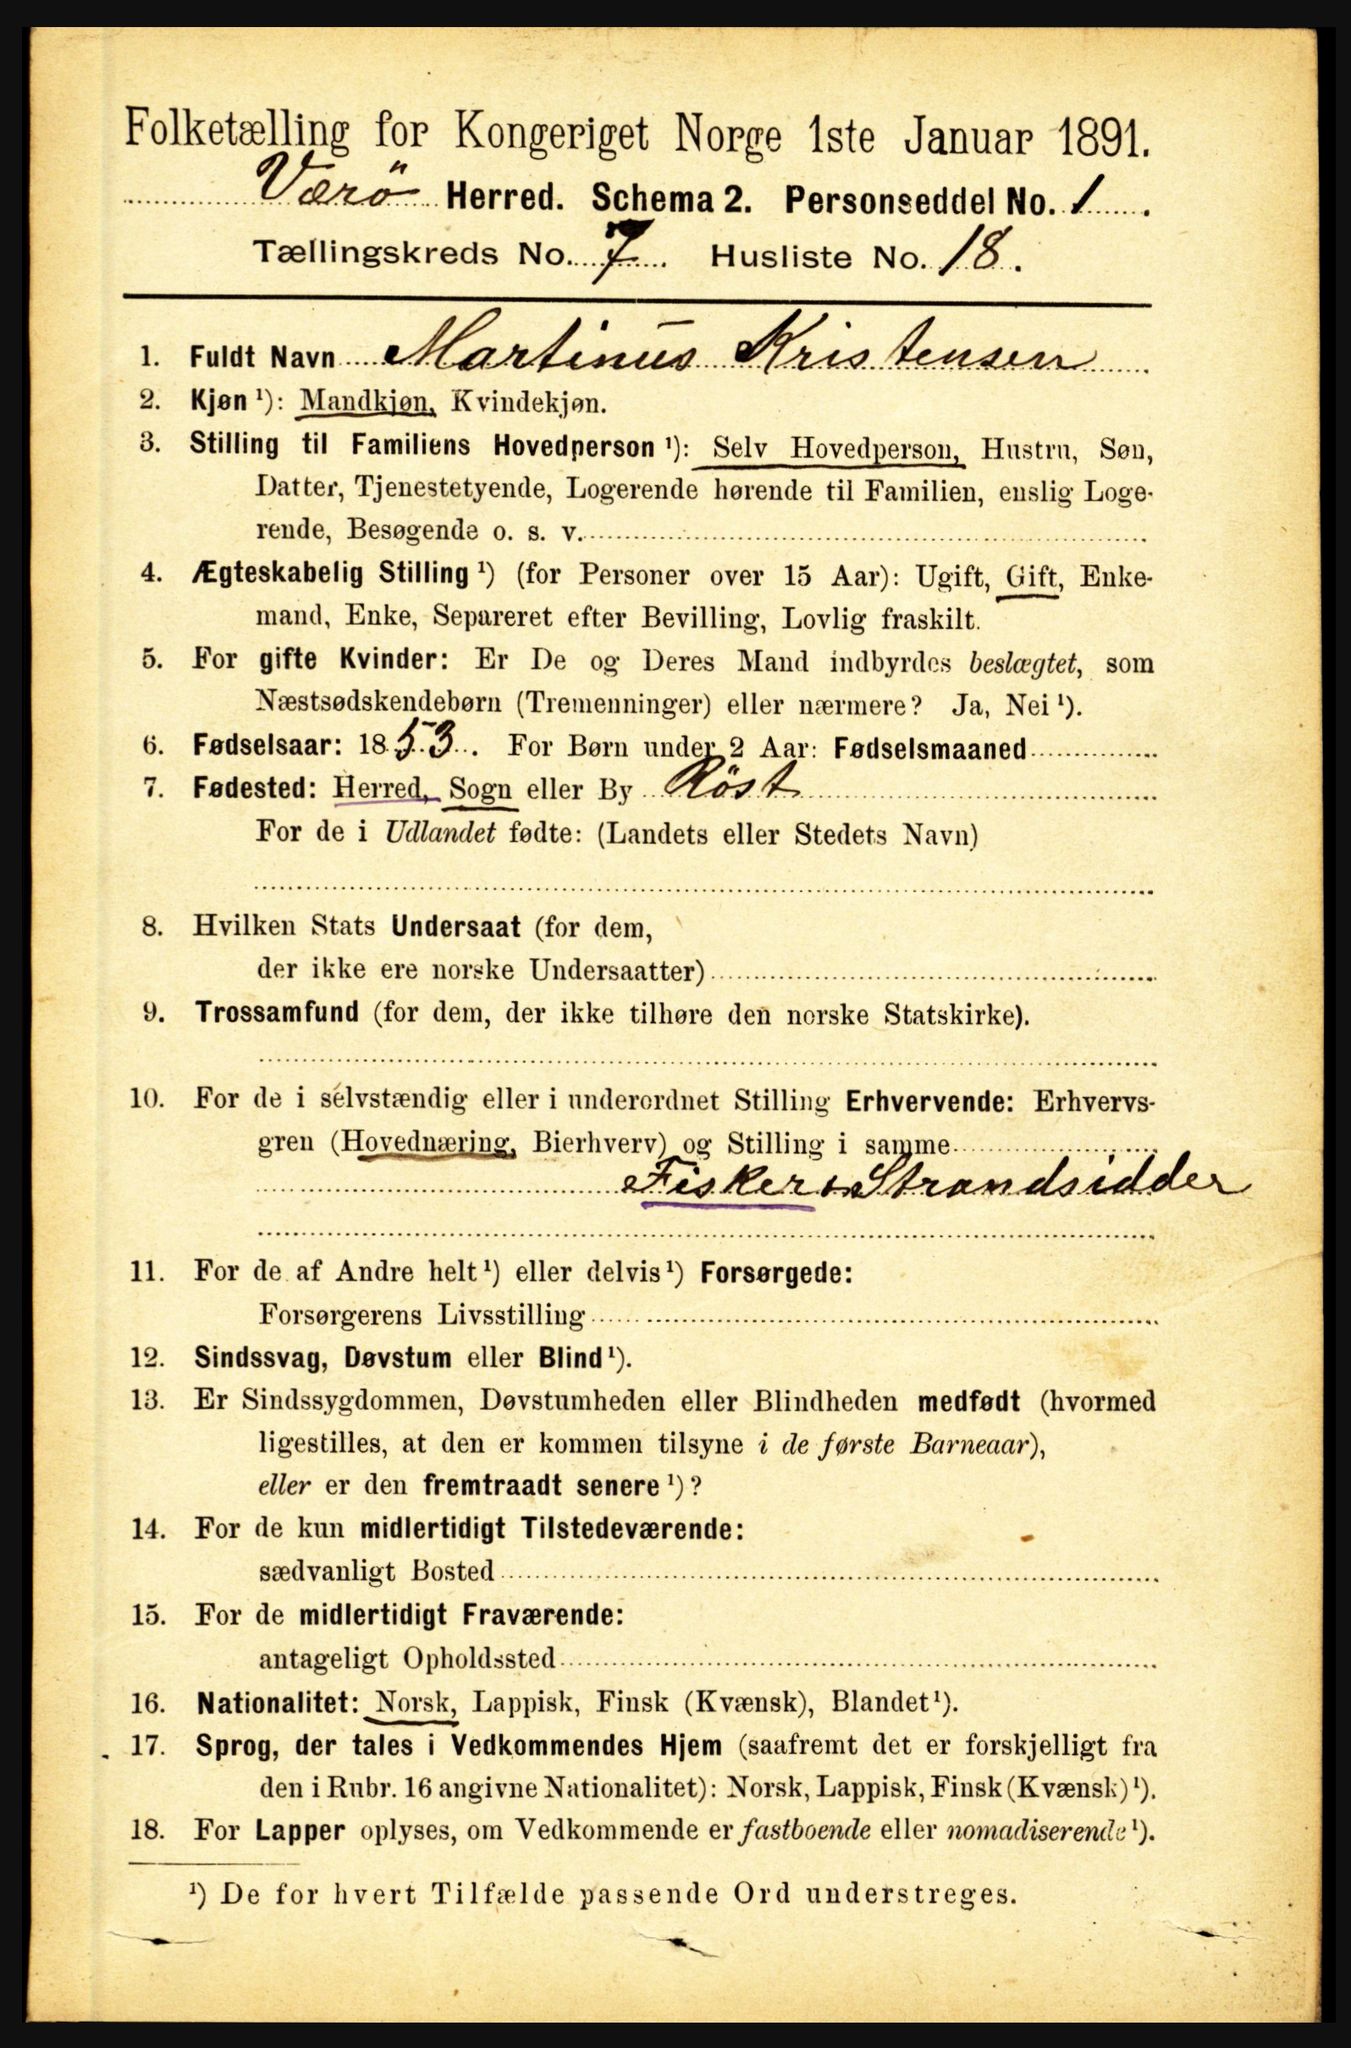 Folketælling for Kongeriget Norge 1ste Januar 1891.
Værö Herred. Schema 2. Personseddel No. 1.
Tællingskreds No. 7. Husliste No. 18.
1. Fuldt Navn Martinus Kristensen
2. Kjøn ¹): Mandkjøn, Kvindekjøn.
3. Stilling til Familiens Hovedperson ¹): Selv Hovedperson, Hustru, Søn,
Datter, Tjenestetyende, Logerende hørende til Familien, enslig Loge-
rende, Besøgende o. s. v.
4. Ægteskabelig Stilling ¹) (for Personer over 15 Aar): Ugift, Gift, Enke-
mand, Enke, Separeret efter Bevilling, Lovlig fraskilt.
5. For gifte Kvinder: Er De og Deres Mand indbyrdes beslægtet, som
Næstsødskendebørn (Tremenninger) eller nærmere? Ja, Nei ¹).
6. Fødselsaar: 1853. For Børn under 2 Aar: Fødselsmaaned
7. Fødested: Herred, Sogn eller By Röst
For de i Udlandet fødte: (Landets eller Stedets Navn)
8. Hvilken Stats Undersaat (for dem,
der ikke ere norske Undersaatter)
9. Trossamfund (for dem, der ikke tilhøre den norske Statskirke).
10. For de i selvstændig eller i underordnet Stilling Erhvervende: Erhvervs-
gren (Hovednæring, Bierhverv) og Stilling i samme
Fisker & Strandsidder
11. For de af Andre helt ¹) eller delvis ¹) Forsørgede:
Forsørgerens Livsstilling
12. Sindssvag, Døvstum eller Blind ¹).
13. Er Sindssygdommen, Døvstumheden eller Blindheden medfødt (hvormed
ligestilles, at den er kommen tilsyne i de første Barneaar),
eller er den fremtraadt senere ¹)?
14. For de kun midlertidigt Tilstedeværende:
sædvanligt Bosted
15. For de midlertidigt Fraværende:
antageligt Opholdssted
16. Nationalitet: Norsk, Lappisk, Finsk (Kvænsk), Blandet ¹).
17. Sprog, der tales i Vedkommendes Hjem (saafremt det er forskjelligt fra
den i Rubr. 16 angivne Nationalitet): Norsk, Lappisk, Finsk (Kvænsk) ¹).
18. For Lapper oplyses, om Vedkommende er fastboende eller nomadiserende ¹).
¹) De for hvert Tilfælde passende Ord understreges.